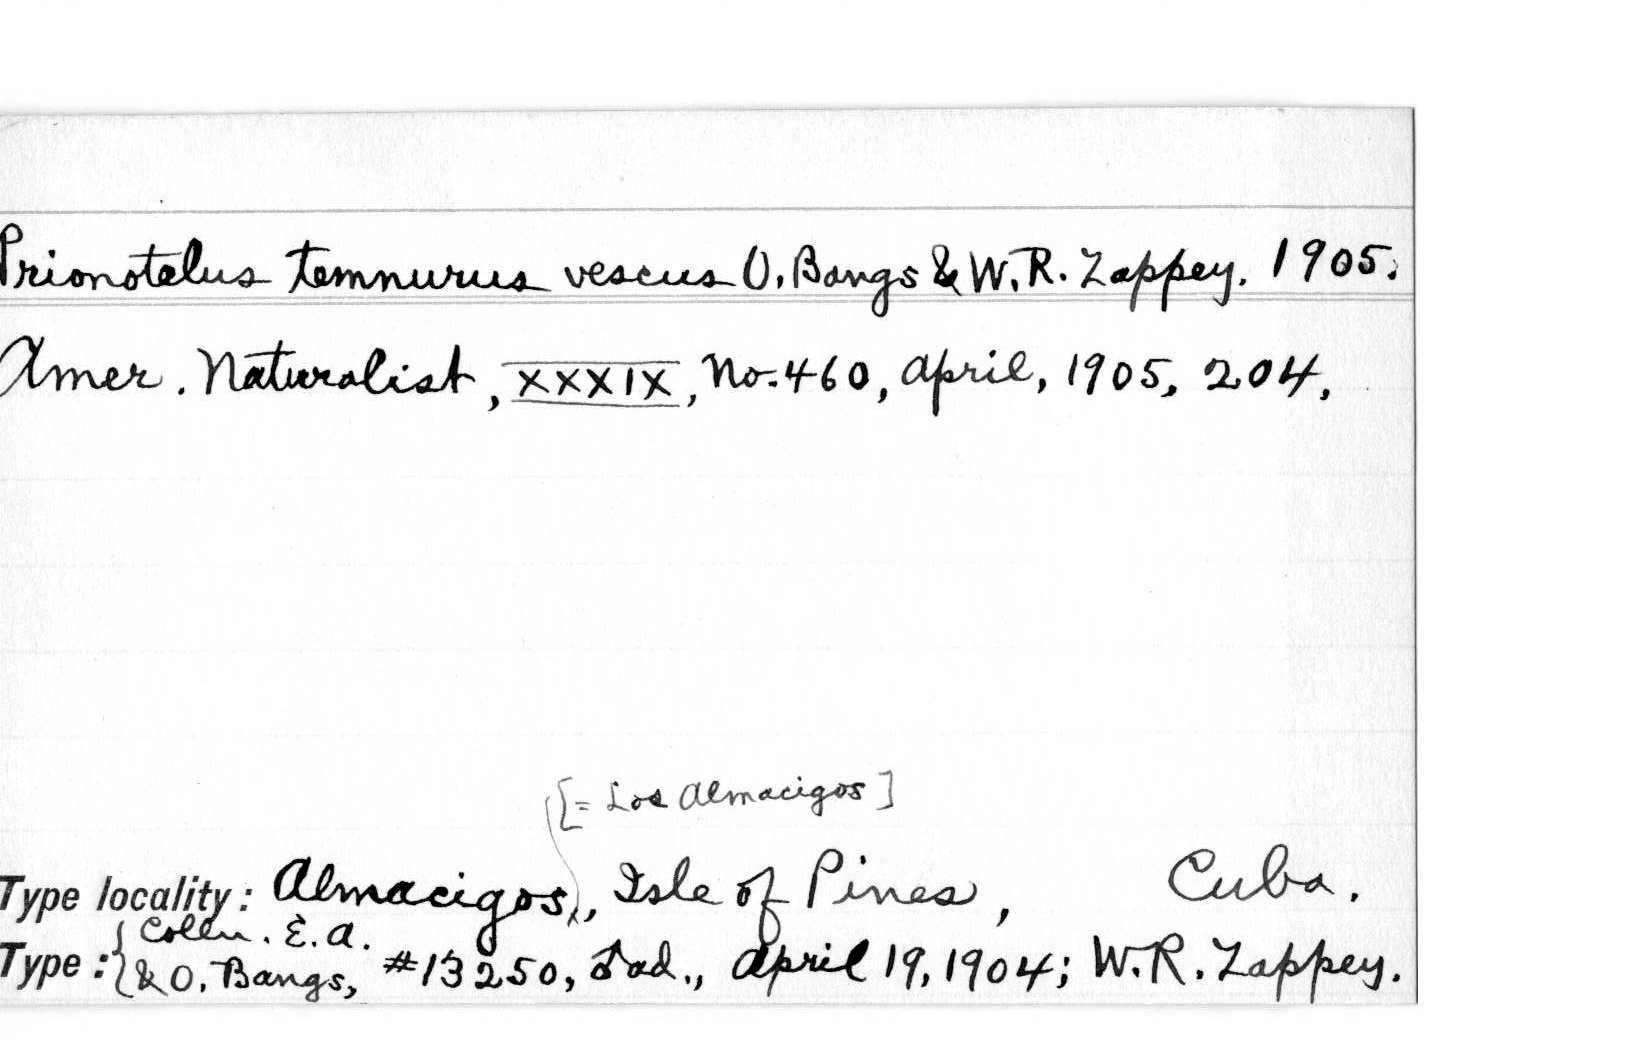 Prionotelus temnurus vescus O. Bangs & W.R. Zappey. 1905.
Amer. Naturalist, XXXIX, No. 460, April, 1905, 204.
[= Los Almacigos]
Type locality: Almacigos, Isle of Pines, Cuba.
Type: { Colln. E.A. & O. Bangs, #13250, ♂ ad., April 19, 1904; W.R. Zappey.